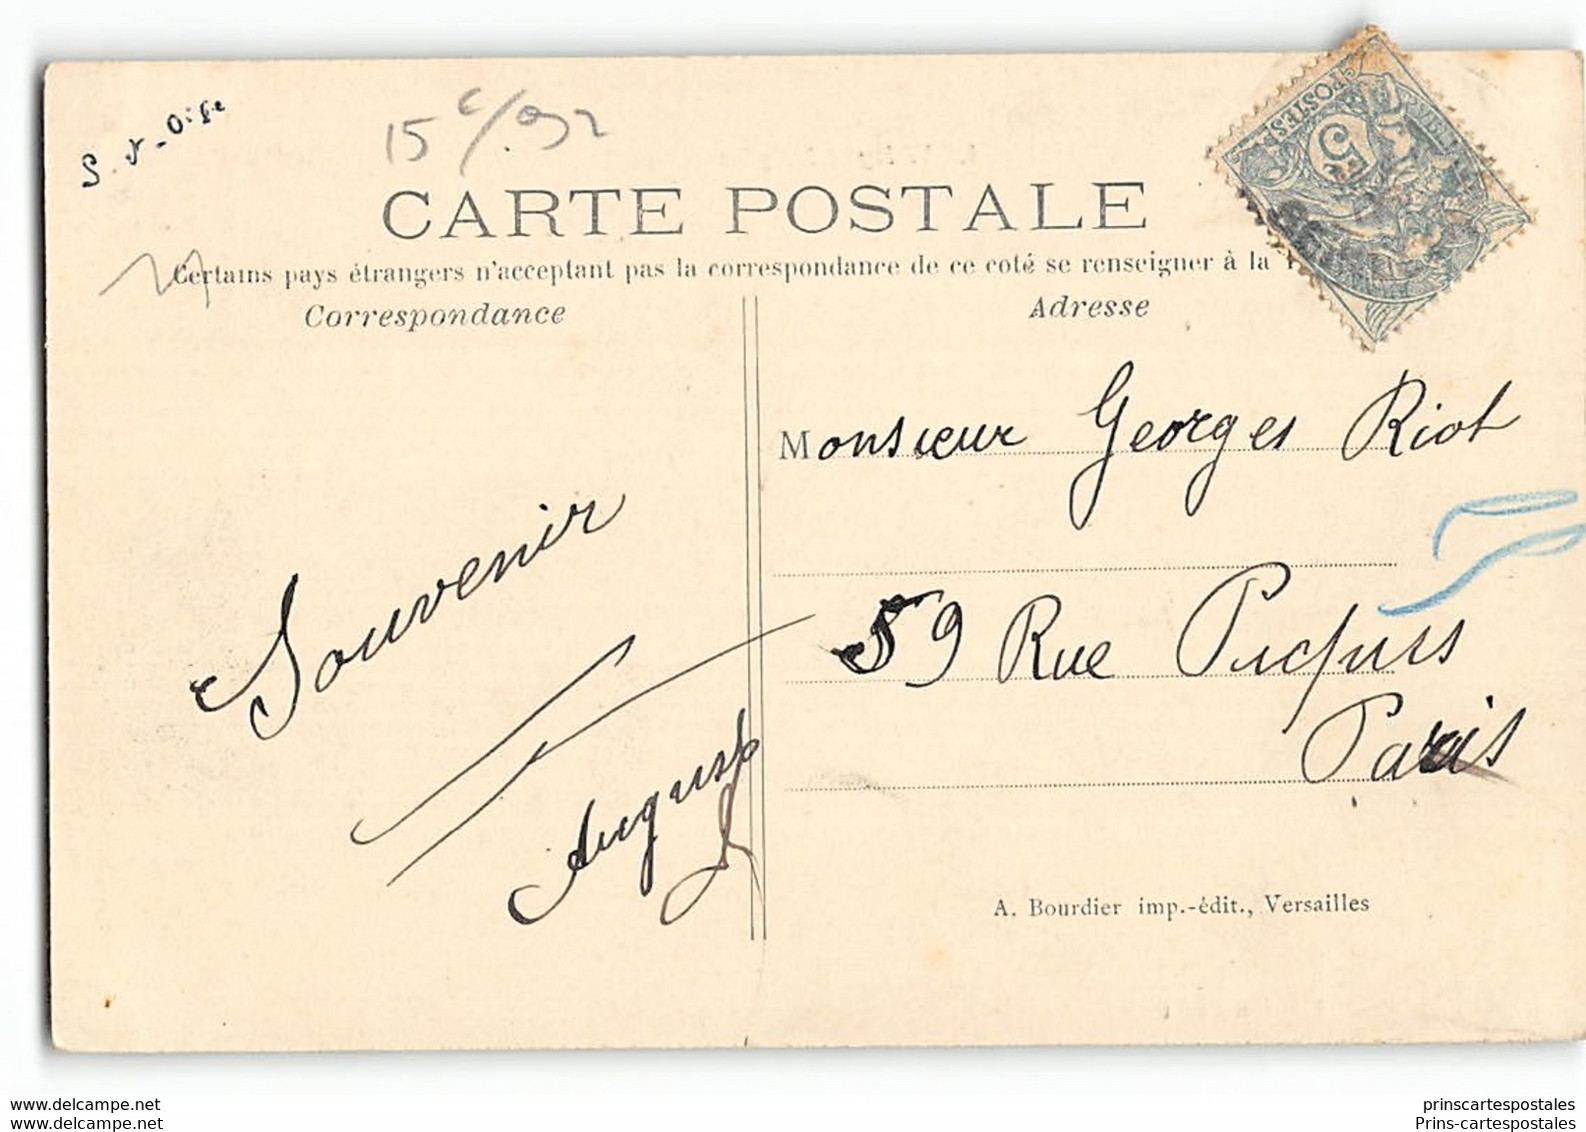 S. N - Oise
15 c/.
CARTE POSTALE
Certains pays étrangers n'acceptant pas la correspondance de ce coté se renseigner à la
Correspondance
Adresse
POSTES
5
Souvenir
August
Monsieur Georges Riot
59 Rue Picpus
Paris
A. Bourdier imp.-édit., Versailles
www.delcampe.net
www.delcampe.net
prinscartespostales
Prins-cartespostales